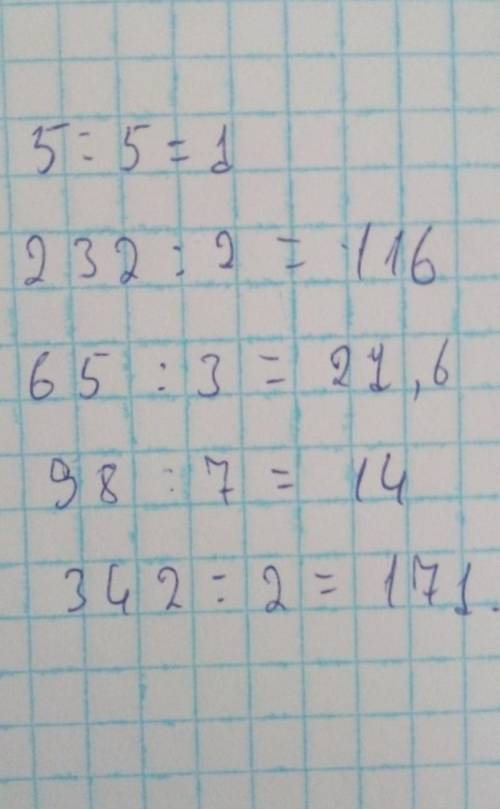 5 : 5 = 1
232 : 2 = 116
65 : 3 = 21,6
98 : 7 = 14
342 : 2 = 171.